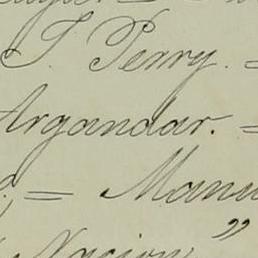 J. Perry. =
Argandar. =
= Manu
Nacion"